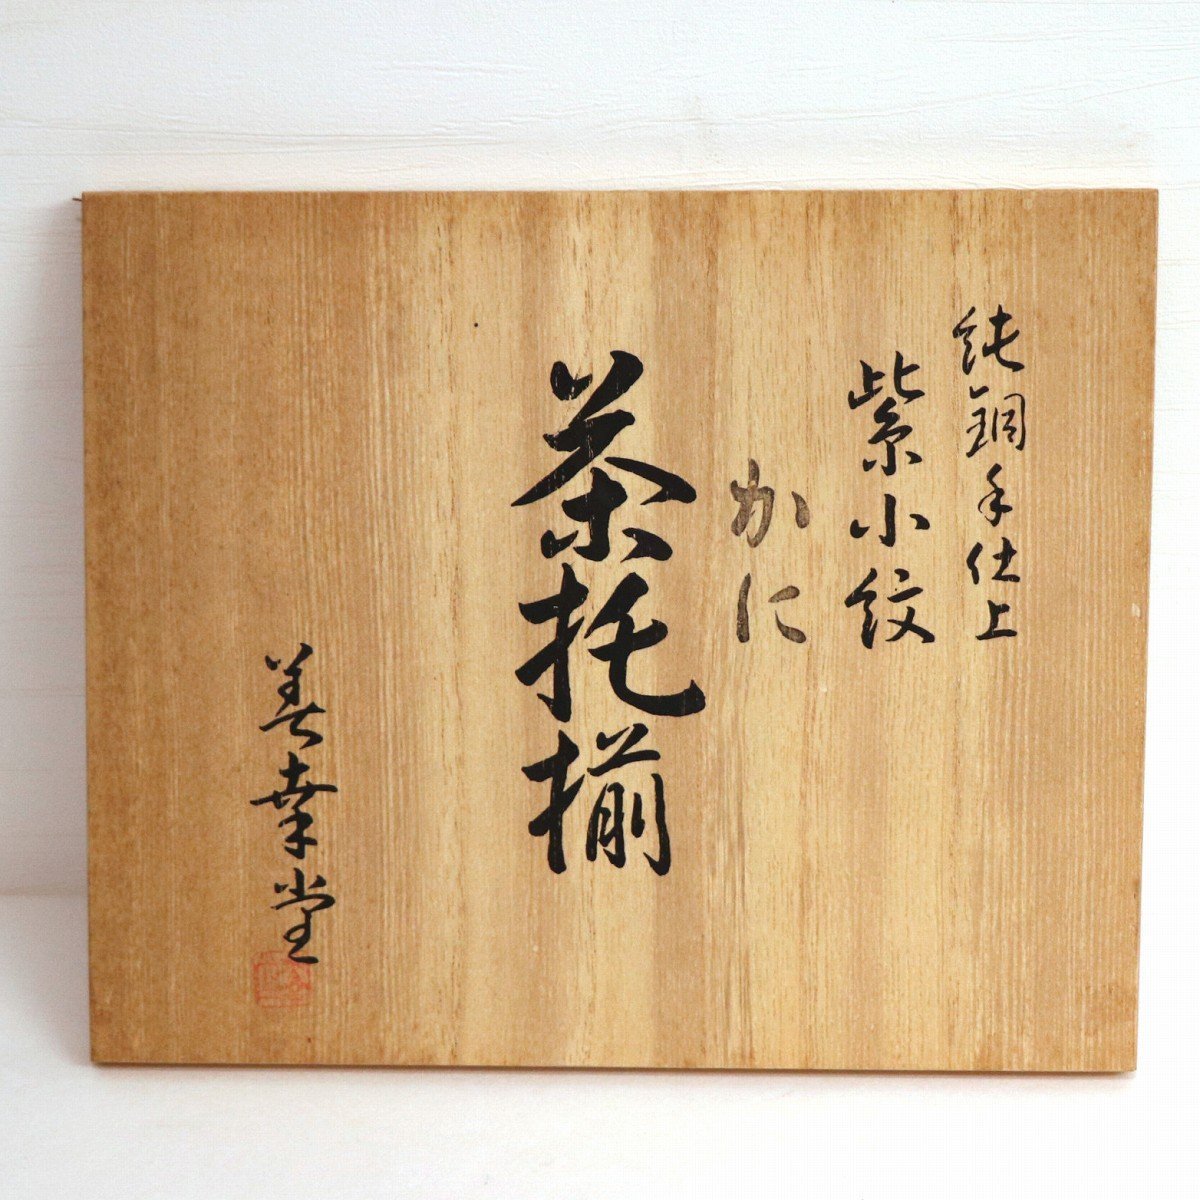 純銅手仕上
紫小紋
かに
茶托揃
美幸堂